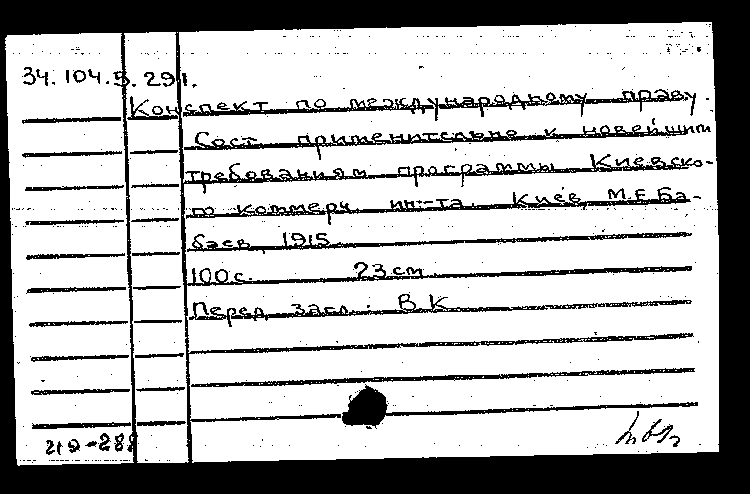 34.104.5.291.
Конспект по международному праву.
Сост. применительно к новейшим
требованиям программы Киевско-
го коммерч. ин-та. Киев, М.Е.Ба-
баев, 1915.
100 с. 23 cm
Перед загл.: В.К.
219-288